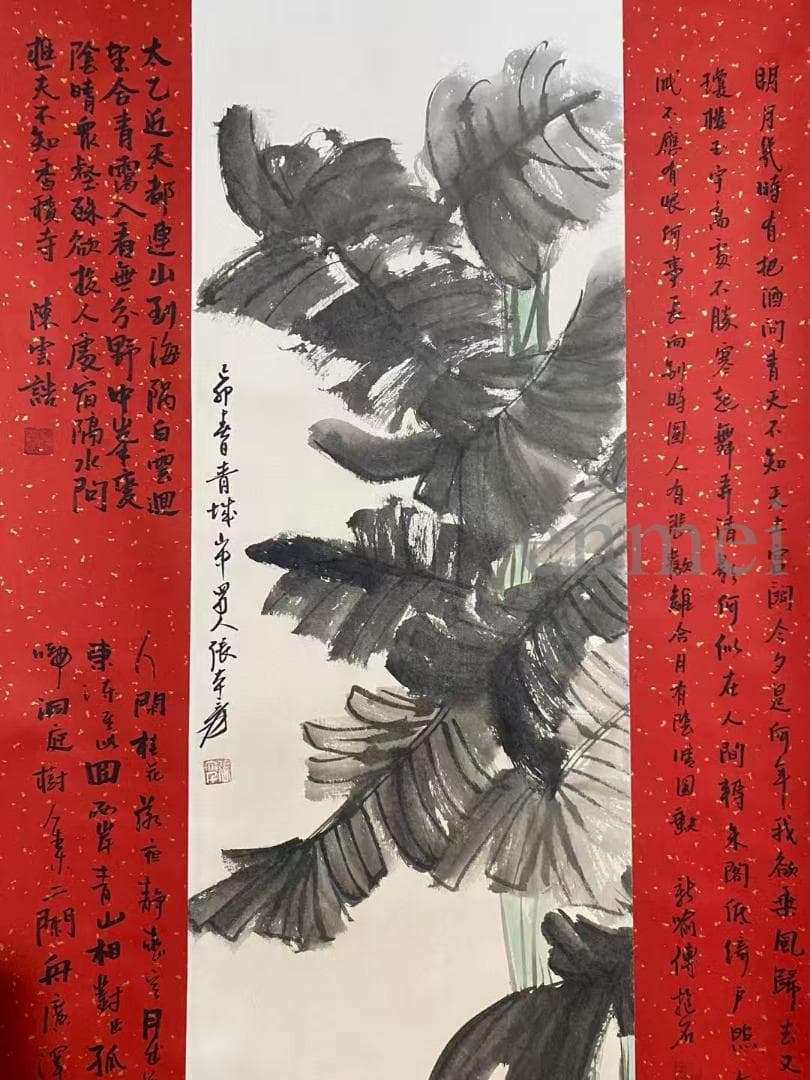 明月幾時有把酒問青天不知天上宮闕今夕是何年我欲乘風歸去又
瓊樓玉宇高處不勝寒起舞弄清影何似在人間轉朱閣低綺戶照
眠不應有恨何事長向別時圓人有悲歡離合月有陰晴圓缺 新喻傅抱石
己卯春青城山中蜀人張大爰
太乙近天都連山到海隅白雲迴
望合青靄入看無分野中峯變
陰晴眾壑殊欲投人處宿隔水問
樵夫不知香積寺 陳雲誥
人閒桂花落夜靜春空月出
東流至此回兩岸青山相對出孤
啼洞庭樹人在木蘭舟廣澤
enmei